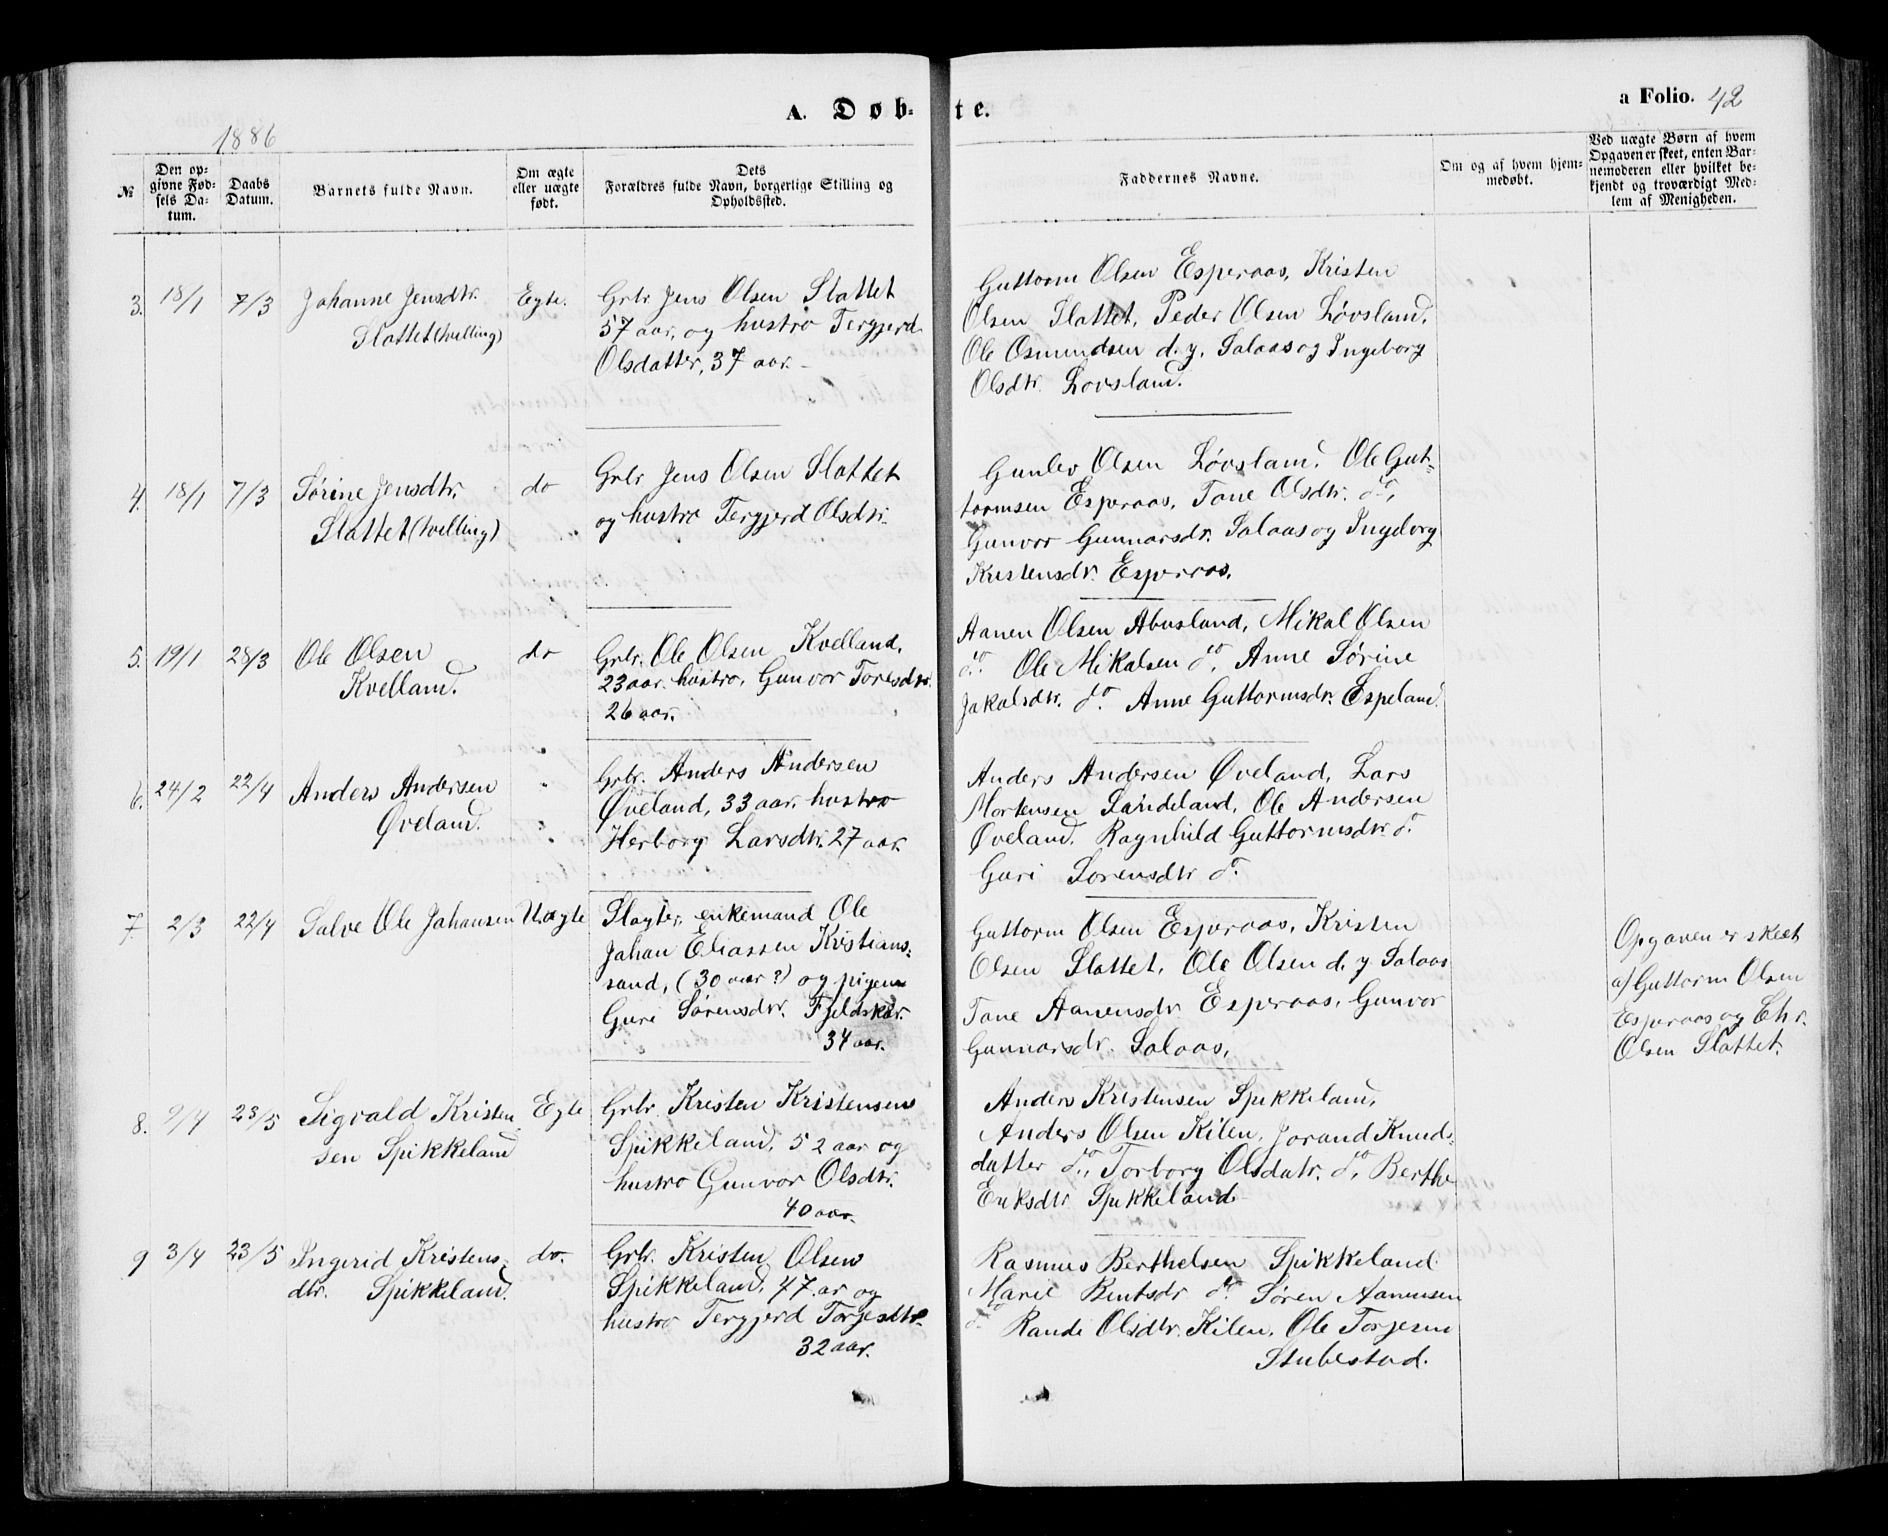 A. Døbte.
a Folio. 42
1886
№
Den opgivne Fødsels Datum.
Daabs Datum.
Barnets fulde Navn.
Om ægte eller uægte født.
Dets Forældres fulde Navn, borgerlige Stilling og Opholdssted.
Faddernes Navne.
Om og af hvem hjemmedøbt.
Ved uægte Børn af hvem Opgaven er skeet, enten Barnemoderen eller hvilket bekjendt og troværdigt Medlem af Menigheden.
3. 18/1 7/3
Johanne Jensdtr.
Slottet (tvilling)
Egte.
Grbr Jens Olsen Slottet
57 aar, og hustro Tergjerd
Olsdatter, 37 aar.
Guttorm Olsen Esperaas, Kristen
Olsen Slattet, Peder Olsen Løvsland,
Ole Osmundsen d. y. Salaas og Ingeborg
Olsdtr. Lovsland.
4. 18/1 7/3
Sørine Jensdtr.
Slattet (tvilling)
do
Grbr Jens Olsen Slottet
og hustro Tergjerd Olsdtr.
Gunlev Olsen Løvsland. Ole Gut-
tormsen Esperaas, Tone Olsdtr. do,
Gunvor Gunnarsdr. Salaas og Ingeborg
Kristensdr. Esperaas.
5. 19/1 28/3
Ole Olsen
Kvelland.
do
Grbr. Ole Olsen Kvelland,
23 aar. hustro, Gunvor Toresdtr.
26 aar.
Aanen Olsen Abusland, Mikal Olsen
do. Ole Mikalsen do, Anne Sørine
Jakalsdtr. do. Anne Guttormsdr. Espeland.
6. 24/2 22/4
Anders Andersen
Øveland.
"
Grbr. Anders Andersen
Øveland, 33 aar, hustro
Herborg Larsdtr. 27 aar.
Anders Andersen Øveland, Lars
Mortensen Sandeland, Ole Andersen
Øveland. Ragnhild Guttormsdtr. do.
Guri Sorensdtr do.
7. 2/3 22/4
Salve Ole Johansen
Uægte
Slagter, enkemand Ole
Johan Eliassen Kristians-
sand, (30 aar?) og pigen
Guri Sørensdtr. Fjeldskår.
34 aar.
Guttorm Olsen Esperaas, Kristen
Olsen Slattet, Ole Olsen d. y Salaas
Tone Aanensdr Esperaas, Gunvor
Gunnarsdr. Salaas.
Opgaven er skeet
af Guttorm Olsen
Esperaas og Chr.
Olsen Slattet.
8. 2/4 23/5
Sigvald Kristen
sen Spikkeland
Egte
Grbr Kristen Kristensen
Spikkeland, 52 aar og
hustro Gunvor Olsdtr.
40 aar.
Anders Kristensen Spikkeland,
Anders Olsen Kilen, Jorand Knuds-
datter do, Torborg Olsdatr. do, Berthe
Eriksdtr Spikkeland
9 3/4 23/5
Ingerid Kristens-
dtr. Spikkeland.
do.
Grbr. Kristen Olsen
Spikkeland, 47 ar og
hustro Tergjerd Torjesdtr.
32 aar.
Rasmus Berthelsen Spikkeland
Marie Bentsdr do. Søren Aanensen
do Randi Olsdtr. Kilen, Ole Torjesen
Stubestad.